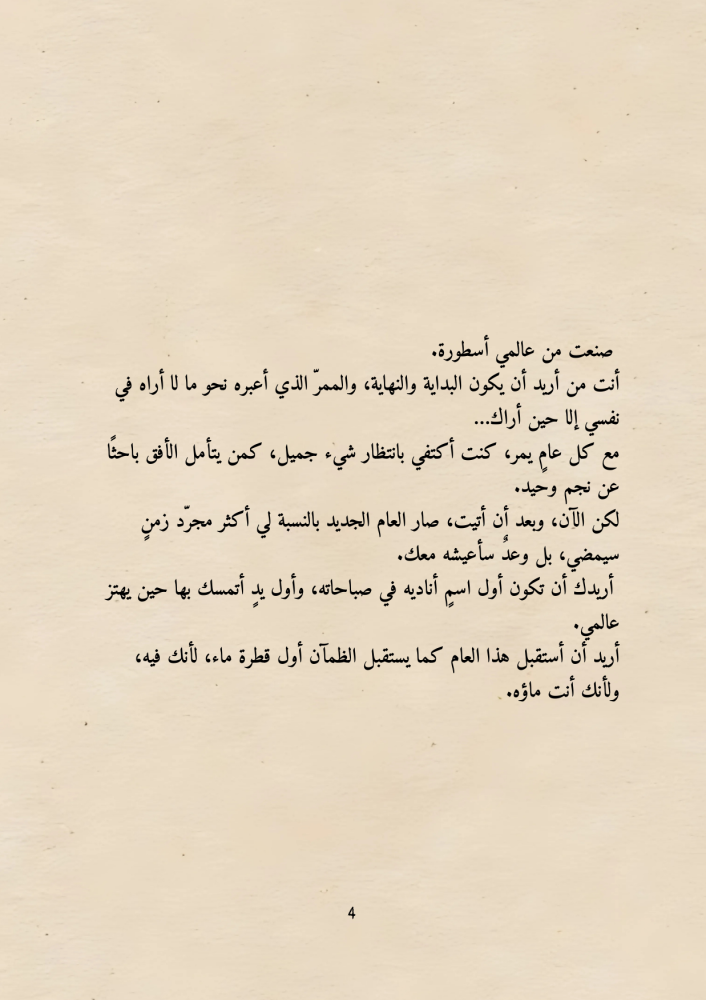 صنعت من عالمي أسطورة.
أنت من أريد أن يكون البداية والنهاية، والممرّ الذي أعبره نحو ما لا أراه في
نفسي إلا حين أراك...
مع كل عامٍ يمر، كنت أكتفي بانتظار شيء جميل، كمن يتأمل الأفق باحثًا
عن نجم وحيد.
لكن الآن، وبعد أن أتيت، صار العام الجديد بالنسبة لي أكثر مجرّد زمنٍ
سيمضي، بل وعدٌ سأعيشه معك.
أريدك أن تكون أول اسمٍ أناديه في صباحاته، وأول يدٍ أتمسك بها حين يهتز
عالمي.
أريد أن أستقبل هذا العام كما يستقبل الظمآن أول قطرة ماء، لأنك فيه،
ولأنك أنت ماؤه.
4